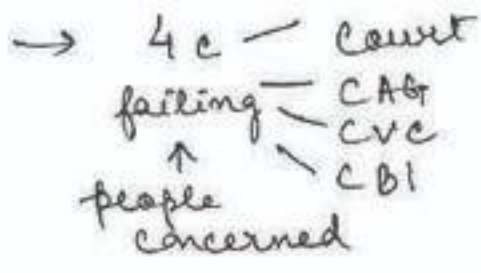 → 4c — Court
failing — CAG
CVC
CBI
↑
people
concerned